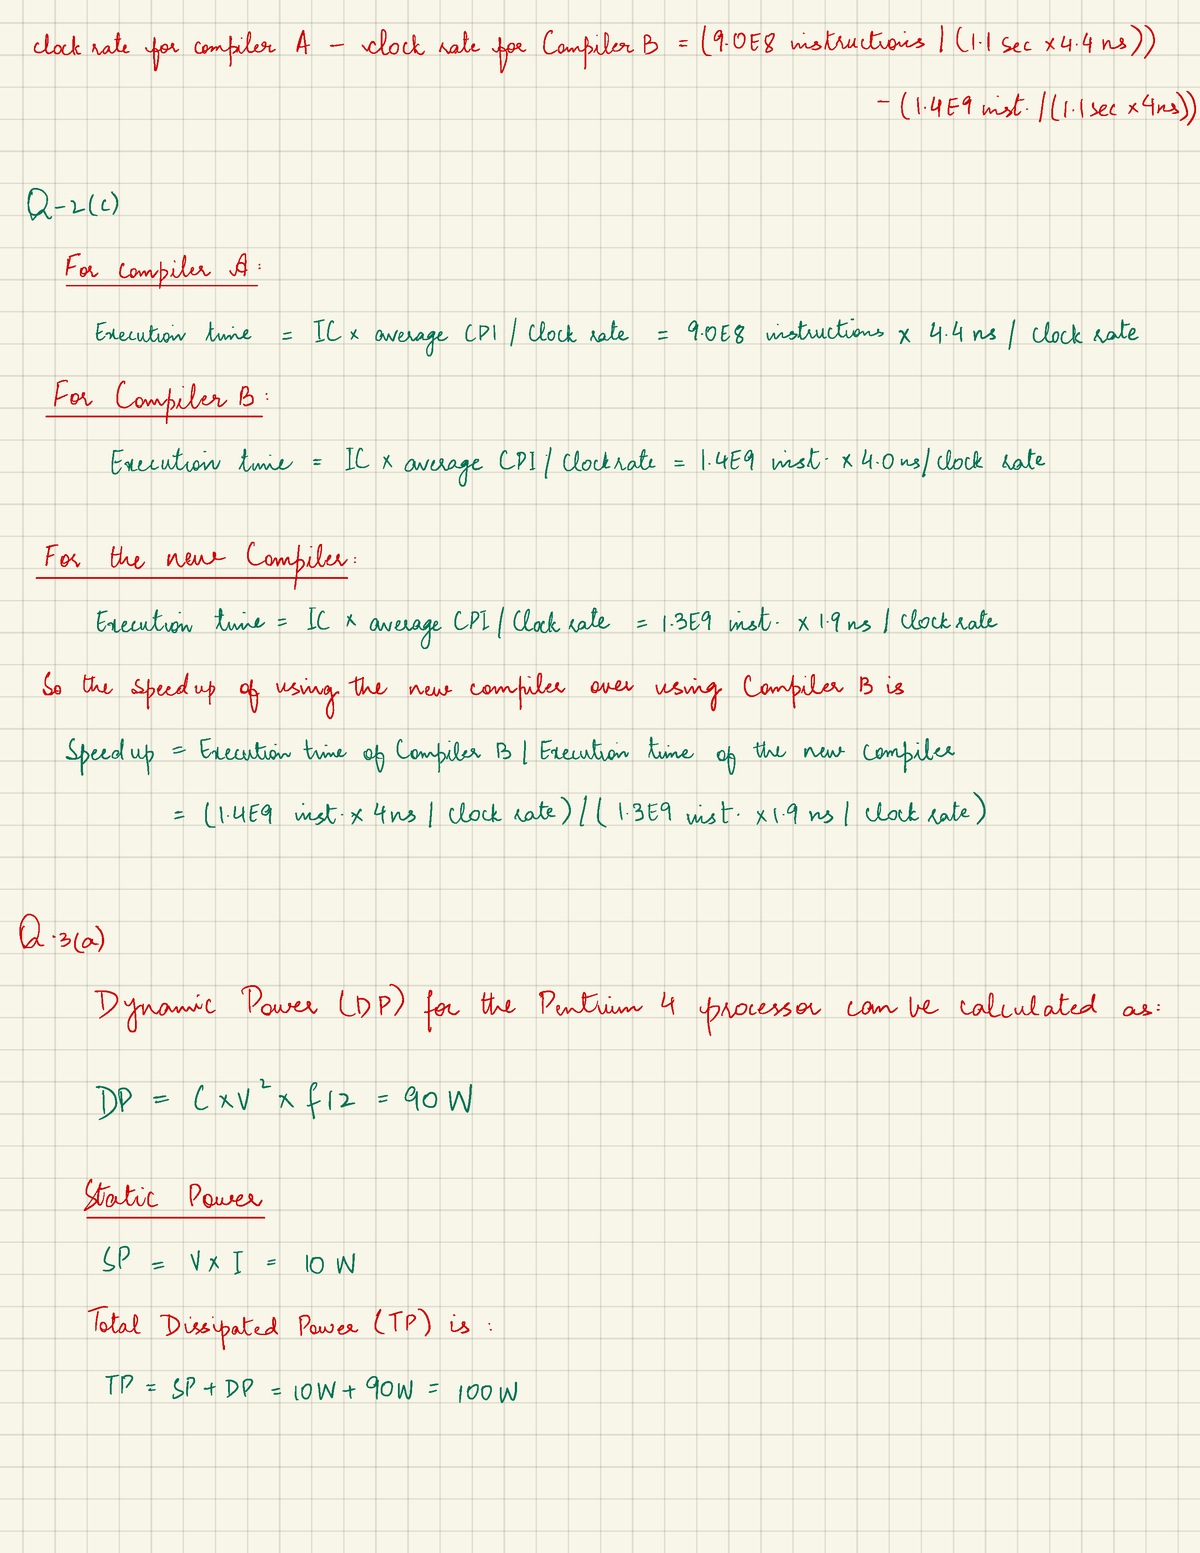 clock rate for compiler A - clock rate for Compiler B = (9.0E8 instructions / (1.1 sec x 4.4 ns))
- (1.4E9 inst. / (1.1 sec x 4ns))
Q-2(c)
For compiler A:
Execution time = IC x average CPI / Clock rate = 9.0E8 instructions x 4.4 ns / clock rate
For Compiler B:
Execution time = IC x average CPI / Clock rate = 1.4E9 inst. x 4.0 ns / clock rate
For the new Compiler:
Execution time = IC x average CPI / Clock rate = 1.3E9 inst. x 1.9 ns / clock rate
So the speed up of using the new compiler over using Compiler B is
Speed up = Execution time of Compiler B / Execution time of the new compiler
= (1.4E9 inst. x 4ns / clock rate) / (1.3E9 inst. x 1.9 ns / clock rate)
Q.3(a)
Dynamic Power (DP) for the Pentrium 4 processor can be calculated as:
DP = C x V² x f/2 = 90 W
Static Power
SP = V x I = 10 W
Total Dissipated Power (TP) is :
TP = SP + DP = 10W + 90W = 100 W